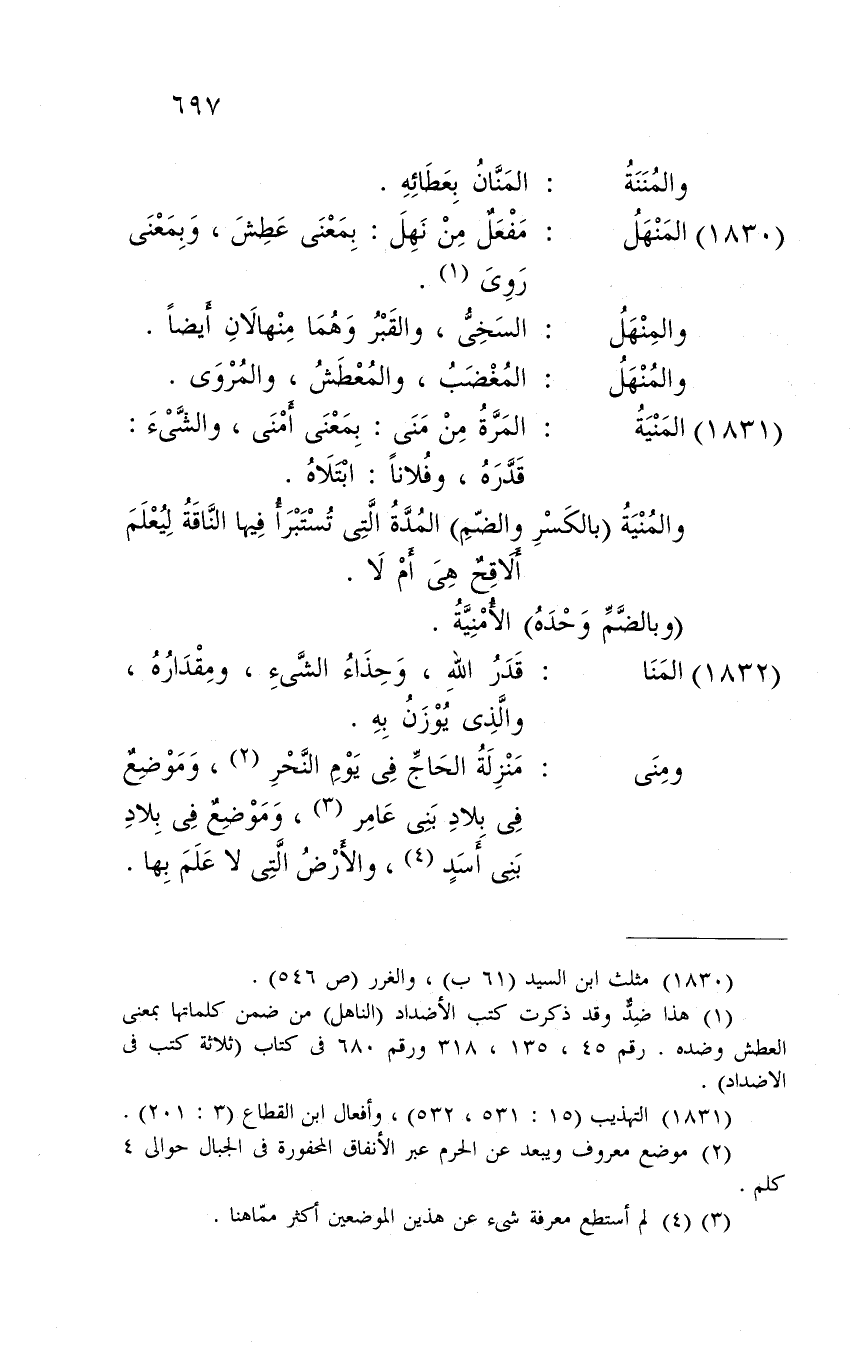 ٦٩٧
والمُنَنَةُ : المَنَّانُ بِعَطَائِهِ .
(١٨٣٠) المَنْهَلُ : مَفْعَلٌ مِنْ نَهِلَ : بِمَعْنَى عَطِشَ ، وَبِمَعْنَى
رَوِىَ (١) .
والمِنْهَلُ : السَخِىُّ ، والقَبْرُ وَهُمَا مِنْهالَانِ أَيضاً .
والمُنْهَلُ : المُغْضَبُ ، والمُعْطَشُ ، والمُرْوَى .
(١٨٣١) المَنْيَةُ : المَرَّةُ مِنْ مَنَى : بِمَعْنَى أَمْنَى ، والشَّىْءَ :
قَدَّرَهُ ، وفُلاناً : ابْتَلَاهُ .
والمُنْيَةُ (بالكَسْرِ والضّمِ) المُدَّةُ الَّتِى تُسْتَبْرَأُ فِيها النَّاقَةُ لِيُعْلَمَ
أَلَاقِحٌ هِىَ أَمْ لَا .
(وبالضَّمِّ وَحْدَهُ) الأُمْنِيَّةُ .
(١٨٣٢) المَنَا : قَدَرُ اللهِ ، وَحِذَاءُ الشَّىءِ ، ومِقْدَارُهُ ،
والَّذِى يُوْزَنُ بِهِ .
ومِنَى : مَنْزِلَةُ الحَاجِّ فِى يَوْمِ النَّحْرِ (٢) ، وَمَوْضِعٌ
فِى بِلادِ بَنِى عَامِر (٣) ، وَمَوْضِعٌ فِى بِلادِ
بَنِى أَسَدٍ (٤) ، والأَرْضُ الَّتِى لا عَلَمَ بِها .
(١٨٣٠) مثلث ابن السيد (٦١ ب) ، والغرر (ص ٥٤٦) .
(١) هذا ضِدٌّ وقد ذكرت كتب الأضداد (الناهل) من ضمن كلماتها بمعنى
العطش وضده . رقم ٤٥ ، ١٣٥ ، ٣١٨ ورقم ٦٨٠ فى كتاب (ثلاثة كتب فى
الاضداد) .
(١٨٣١) التهذيب (١٥ : ٥٣١ ، ٥٣٢) ، وأفعال ابن القطاع (٣ : ٢٠١) .
(٢) موضع معروف ويبعد عن الحرم عبر الأنفاق المحفورة فى الجبال حوالى ٤
كلم .
(٣) (٤) لم أستطع معرفة شىء عن هذين الموضعين أكثر ممّاهنا .